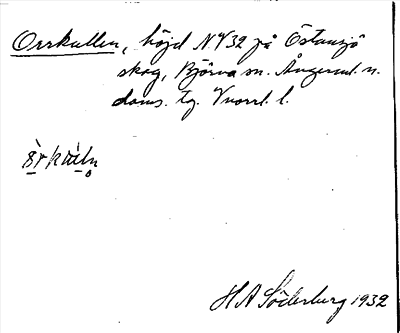 Orrkullen, höjd N. V32 på Östansjö
skog, Björna sn. Ångerml. n.
doms. tg. Vnorrl. l.
H A Söderberg 1932